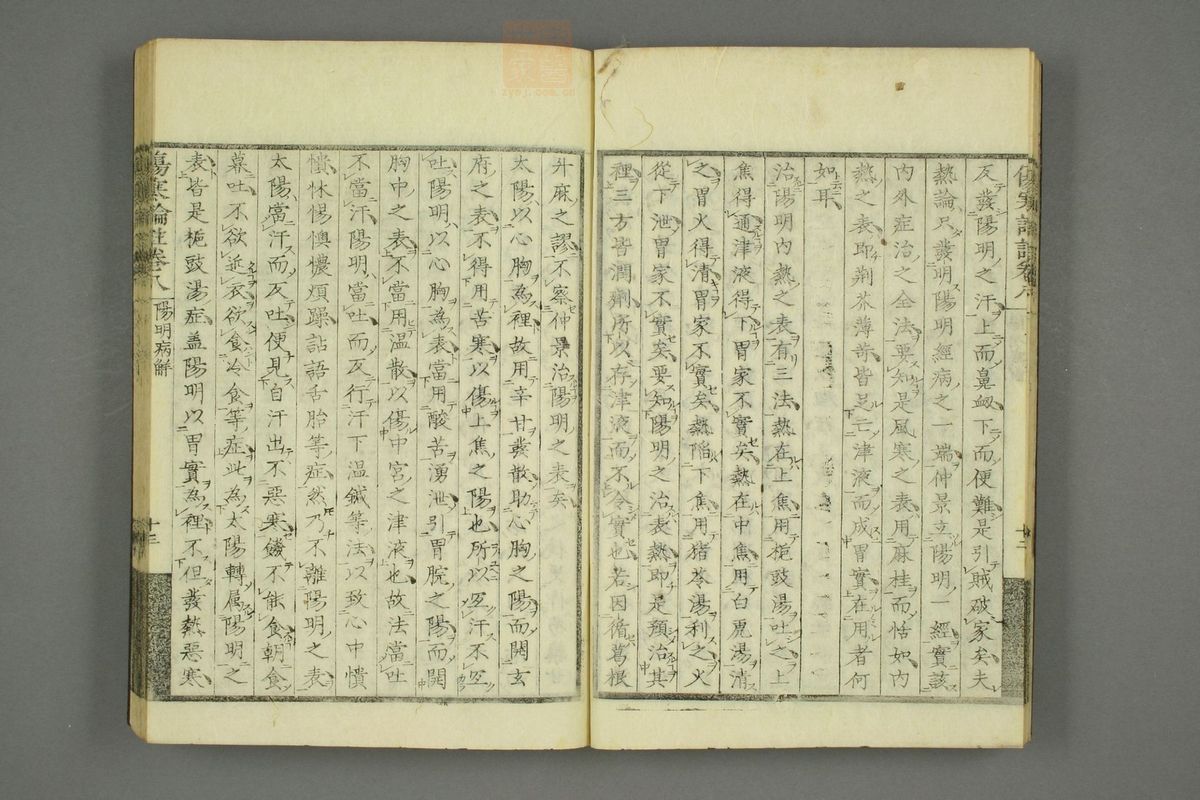 反發陽明之汗上而鼻衄下而便難是引賊破家矣夫
熱論只發明陽明經病之一端仲景立陽明一經實該
内外症治之全法要知是風寒之表用麻桂而恬如内
熱之表即荆芥薄荷皆足亡津液而成胃實在用者何
如耳
治陽明内熱之表有三法熱在上焦用梔豉湯吐之上
焦得通津液得下胃家不實矣熱在中焦用白虎湯清
之胃火得清胃家不實矣熱陷下焦用猪苓湯利之火
從下泄胃家不實矣要知陽明之治表熱即是預治其
裡三方皆潤劑所以存津液而不令實也若因循葛根
升麻之謬不察仲景治陽明之表矣
太陽以心胸為裡故用辛甘發散助心胸之陽而開玄
府之表不得用苦寒以傷上焦之陽也所以宜汗不宜
吐陽明以心胸為表當用酸苦湧泄引胃脘之陽而開
胸中之表不當用温散以傷中宮之津液也故法當吐
不當汗陽明當吐而反行汗下温鍼等法以致心中憒
憒怵惕懊憹煩躁訟語舌胎等症然乃不離陽明之表
太陽當汗而反吐便見自汗出不惡寒饑不能食朝食
暮吐不欲近衣欲食冷食等症此為太陽轉属陽明之
表皆是梔豉湯症盖陽明以胃實為裡不但發熱惡寒
傷寒論註卷八
陽明病解
十三